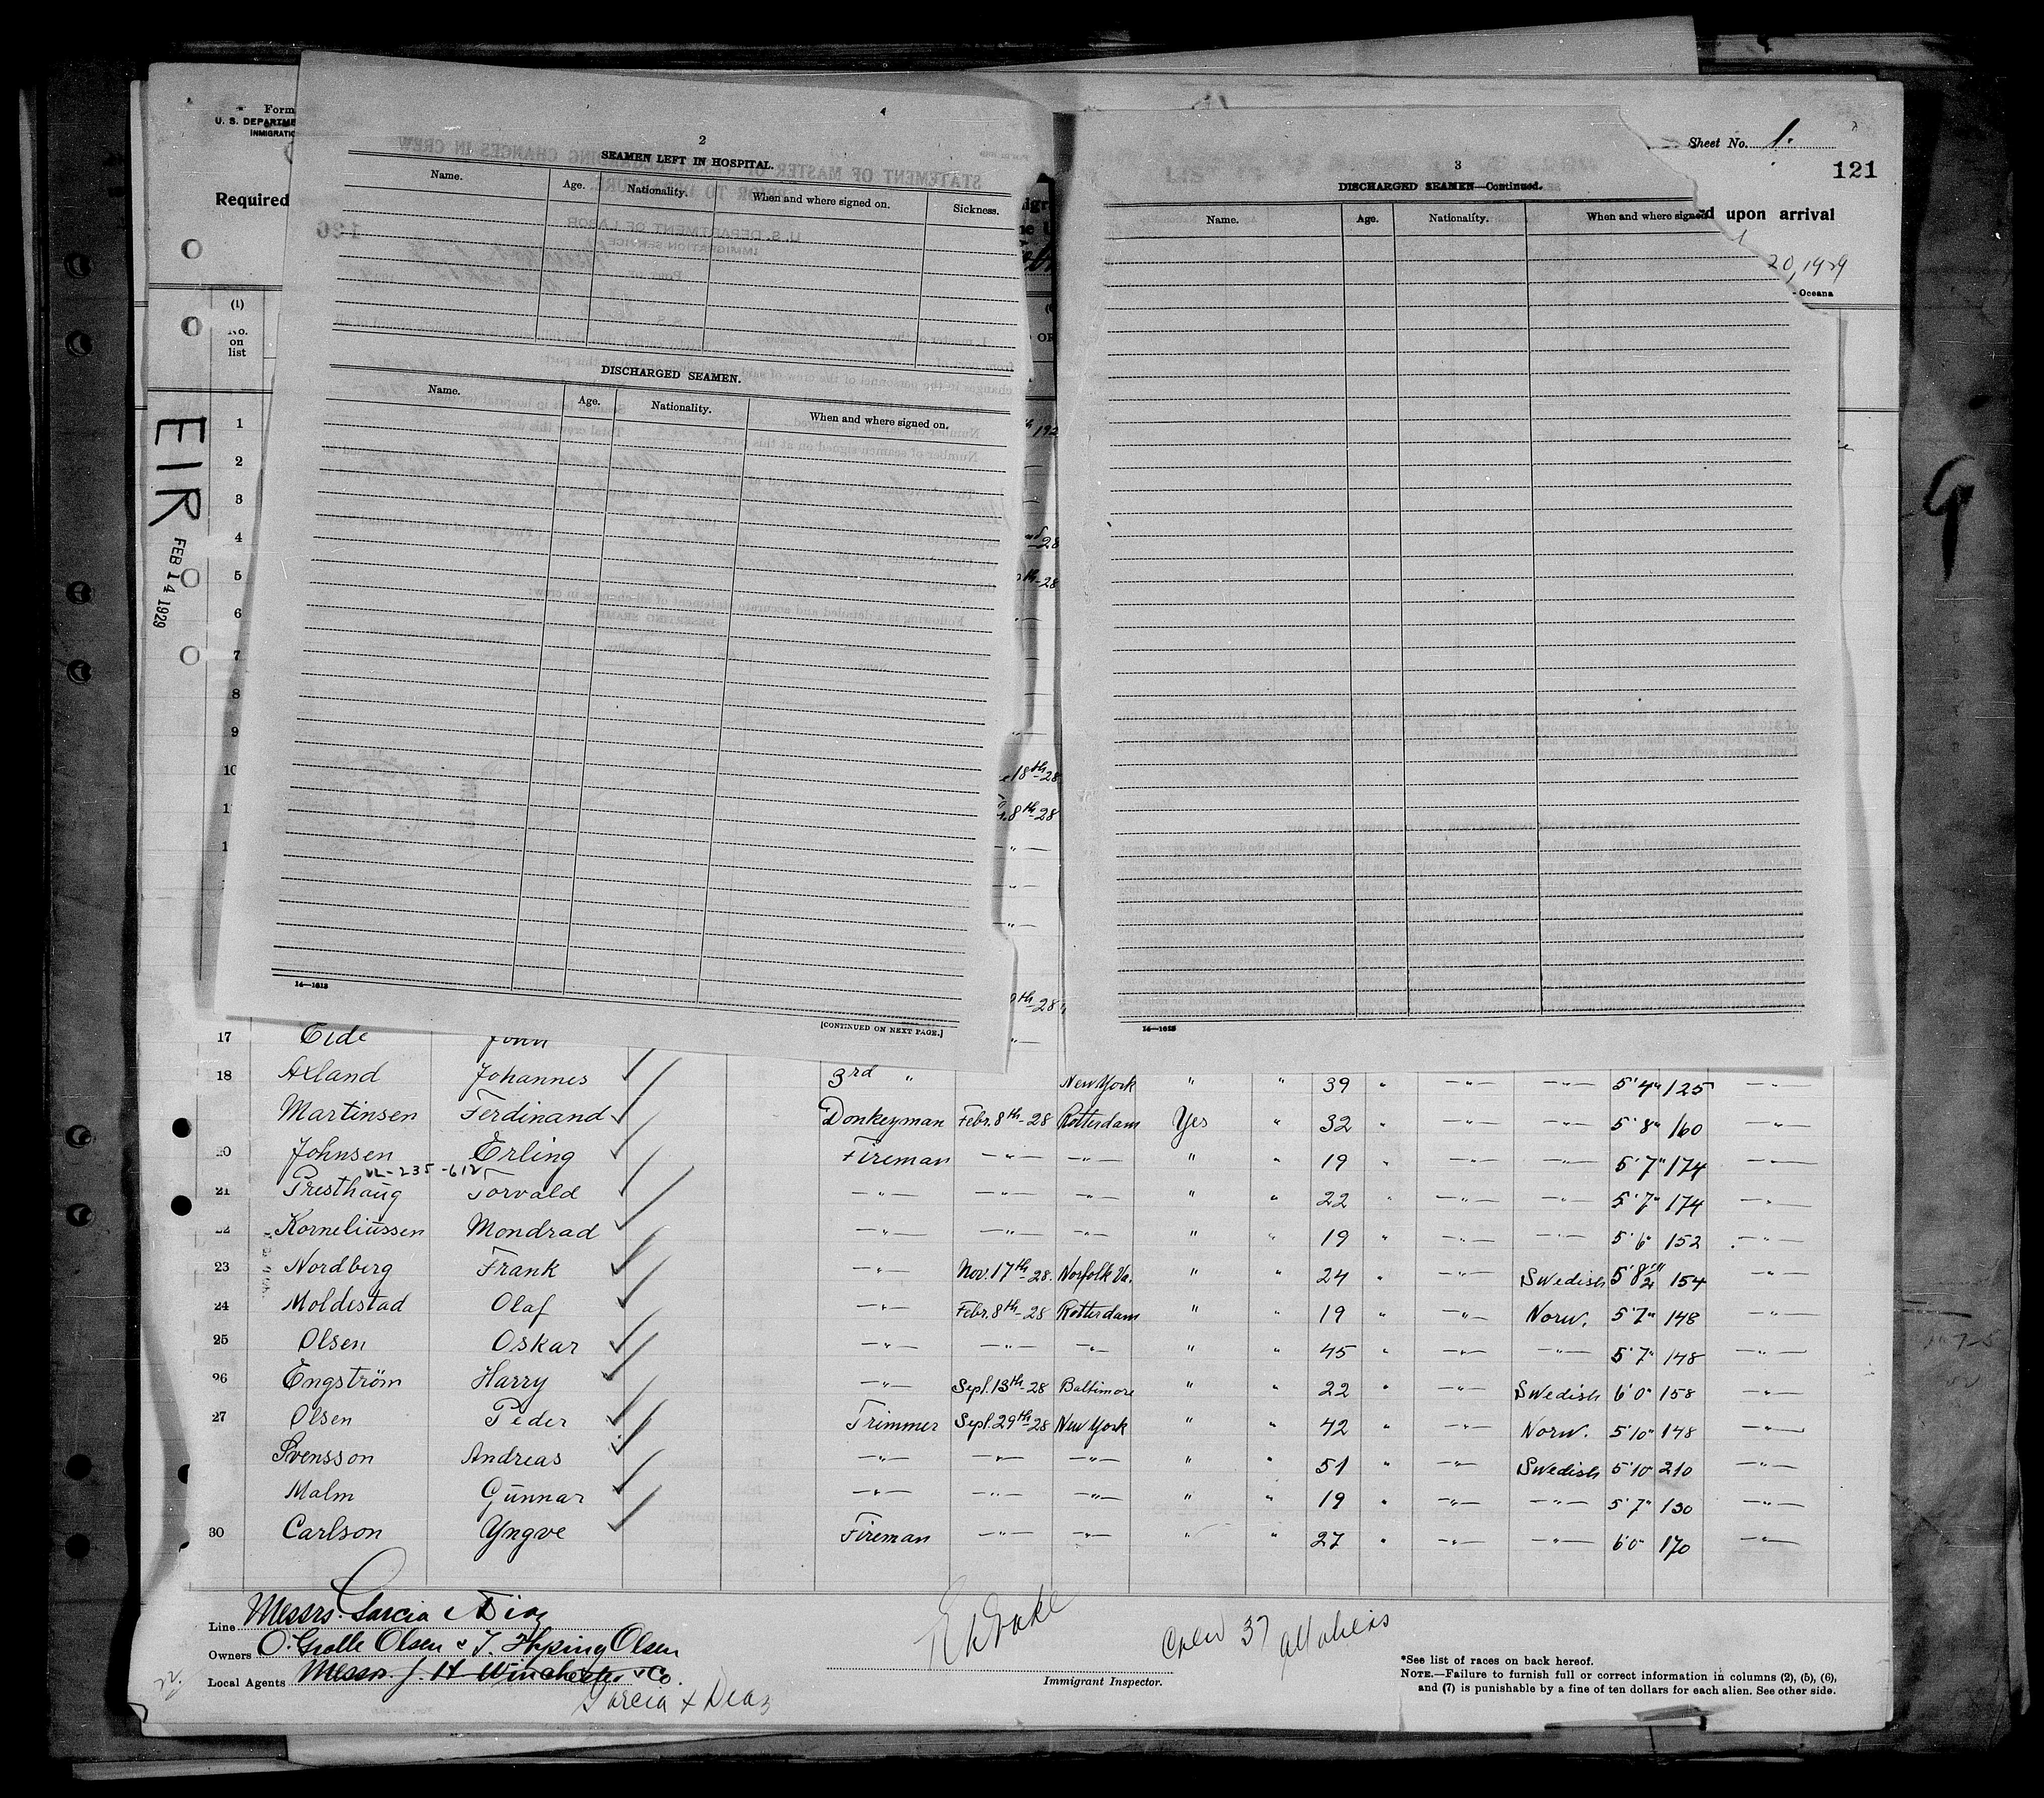 Form
U. S. DEPARTME
IMMIGRATIO
Required
Sheet No. 1.
121
d upon arrival
20, 1929
- Oceana
(1)
No.
on
list
EIR
FEB 14 1929
G
2
SEAMEN LEFT IN HOSPITAL.
Name. Age. Nationality. When and where signed on. Sickness.
DISCHARGED SEAMEN.
Name. Age. Nationality. When and where signed on.
14—1613
[CONTINUED ON NEXT PAGE.]
3
DISCHARGED SEAMEN—Continued.
Name. Age. Nationality. When and where signed
14—1613
1
2
3
4
5
6
7
8
9
10
17 Eide John
18 Axland Johannes 3rd " New York " " 39 " —"— —"— 5'4" 125 —"—
Martinsen Ferdinand Donkeyman Febr. 8th-28 Rotterdam Yes " 32 " —"— —"— 5'8" 160 —"—
20 Johnsen Erling Fireman —"— —"— " " 19 " —"— —"— 5'7" 174 —"—
21 Presthaug Torvald —"— —"— —"— " " 22 " —"— —"— 5'7" 174 —"—
22 Korneliussen Mondrad —"— —"— —"— " " 19 " —"— —"— 5'6" 152 —"—
23 Nordberg Frank —"— Nov. 17th-28. Norfolk Va. " " 24 " —"— Swedish 5'8½" 154 —"—
24 Moldestad Olaf —"— Febr. 8th-28 Rotterdam " " 19 " —"— Norw. 5'7" 148 —"—
25 Olsen Oskar —"— —"— —"— " " 45 " —"— —"— 5'7" 148 —"—
26 Engström Harry —"— Sept. 13th-28 Baltimore " " 22 " —"— Swedish 6'0" 158 —"—
27 Olsen Peder Trimmer Sept. 29th-28 New York " " 42 " —"— Norw. 5'10" 148 —"—
Svensson Andreas —"— —"— —"— " " 51 " —"— Swedish 5'10" 210 —"—
Malm Gunnar —"— —"— —"— " " 19 " —"— —"— 5'7" 130 —"—
30 Carlson Yngve Fireman —"— —"— " " 27 " —"— —"— 6'0" 170 —"—
Line Messrs. Garcia & Diaz
Owners O. Grolle Olsen & T. Hyping Olsen
Local Agents Messrs. J. H. Winchester & Co.
Garcia & Diaz
Immigrant Inspector.
Crew 37 all aliens
*See list of races on back hereof.
NOTE.—Failure to furnish full or correct information in columns (2), (5), (6),
and (7) is punishable by a fine of ten dollars for each alien. See other side.